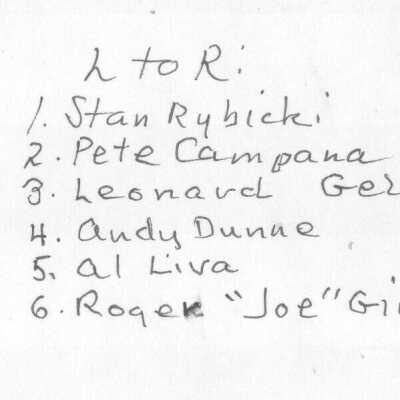 L to R:
1. Stan Rybicki
2. Pete Campana
3. Leonard Ger
4. Andy Dunne
5. Al Liva
6. Roger "Joe" Gi